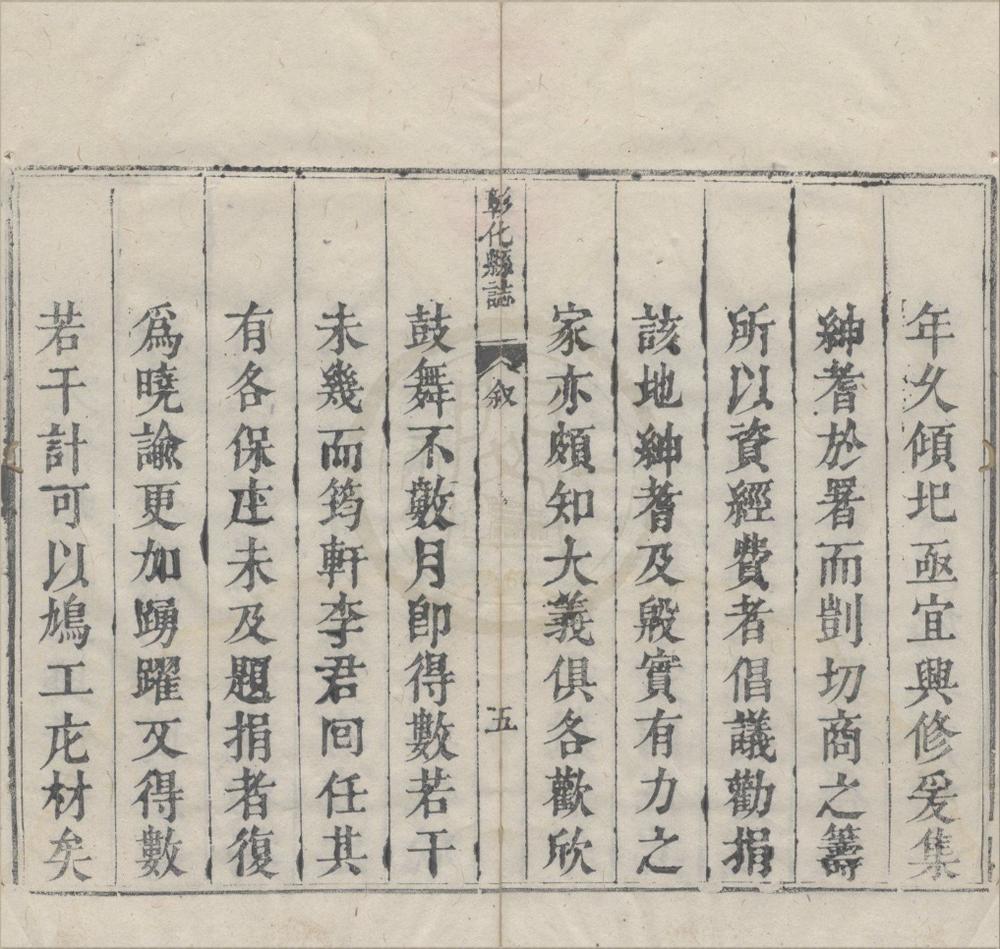 年久傾圯亟宜興修爰集
紳耆於署而剴切商之籌
所以資經費者倡議勸捐
該地紳耆及殷實有力之
家亦頗知大義俱各歡欣
彰化縣誌
叙
五
鼓舞不數月即得數若干
未幾而筠軒李君回任其
有各保庄未及題捐者復
爲曉諭更加踴躍又得數
若干計可以鳩工庀材矣